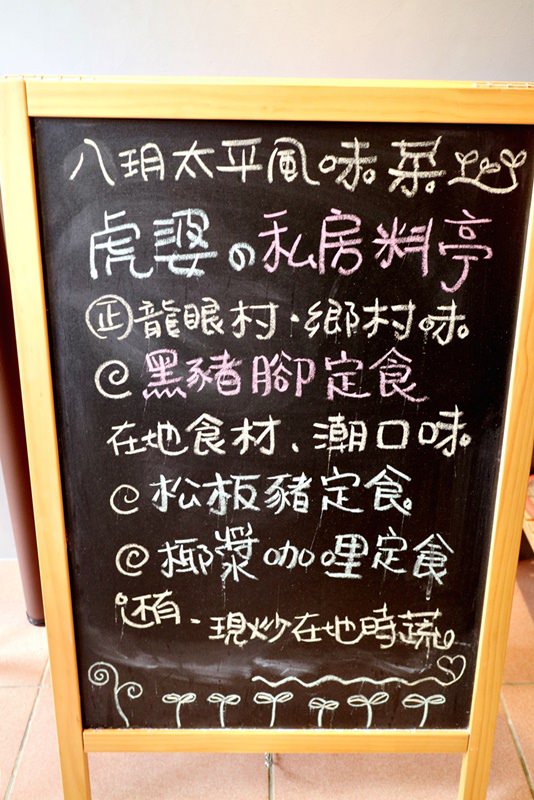 八玥太平風味菜
虎婆の私房料亭
㊣龍眼村·鄉村味
@黑豬腳定食
在地食材、潮口味
@松板豬定食
@椰漿咖哩定食
還有·現炒在地時蔬